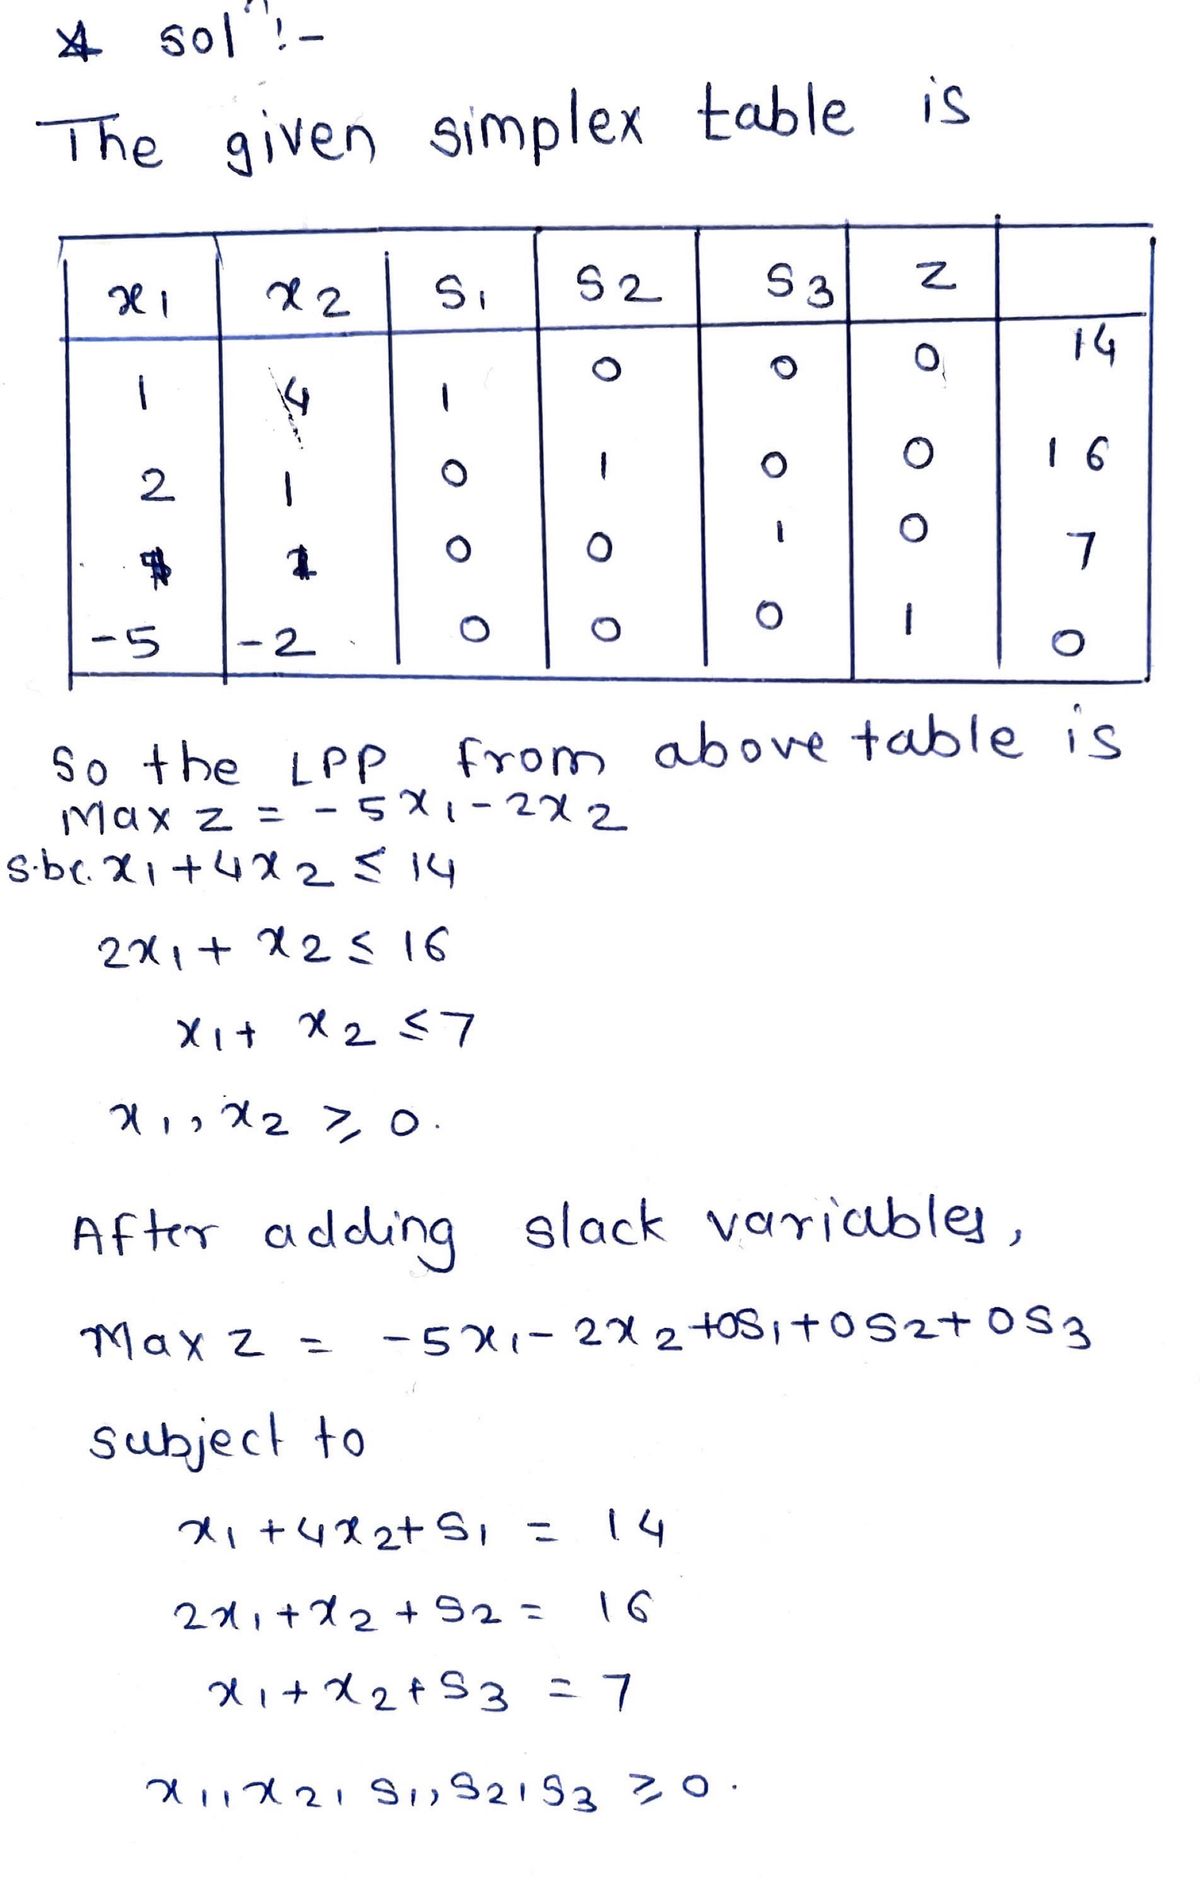 * solⁿ:-
The given simplex table is
x1 x2 S1 S2 S3 Z
1 4 1 0 0 0 14
2 1 0 1 0 0 16
1 0 0 1 0 7
-5 -2 0 0 0 1 0
So the LPP from above table is
Max z = -5x1 - 2x2
s.bc. x1 + 4x2 ≤ 14
2x1 + x2 ≤ 16
x1 + x2 ≤ 7
x1, x2 ≥ 0.
After adding slack variables,
Max z = -5x1 - 2x2 + 0S1 + 0S2 + 0S3
subject to
x1 + 4x2 + S1 = 14
2x1 + x2 + S2 = 16
x1 + x2 + S3 = 7
x1, x2, S1, S2, S3 ≥ 0.